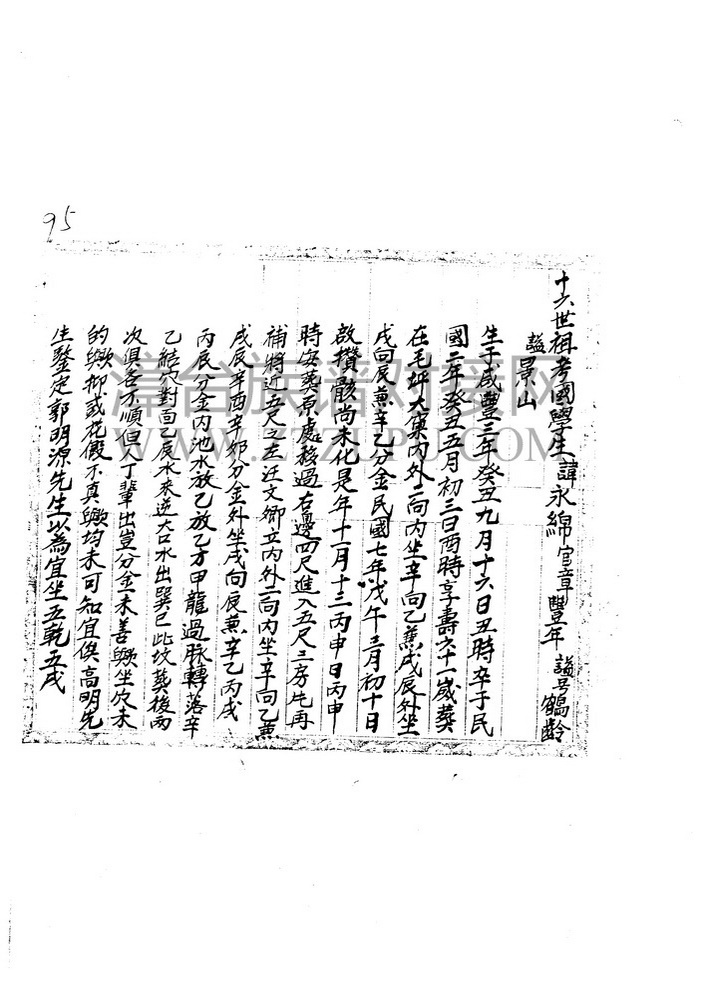 95
十六世祖考國學生諱永綿官章豐年 謚号鶴齡
謚景山
生于咸豐三年癸丑九月十六日丑時卒于民
國二年癸丑五月初三日酉時享壽六十一歲葵
在毛坪大窠内外二向内坐辛向乙兼戌辰外坐
戌向辰兼辛乙分金民國七年戊午三月初十日
啟攢骸尚未化是年十一月十三丙申日丙申
時安葵原處移過右邊四尺進入五尺二房先再
補將近五尺之左迁文卿立内外二向内坐辛向乙兼
戌辰辛酉辛卯分金外坐戌向辰兼辛乙丙戌
丙辰分金内池水放乙放乙方甲龍過脉轉落辛
乙結穴對面乙辰水來逆大口水出巽巳此坟葵後兩
次俱各不順但人丁輩出豈分金未善歟坐穴未
的歟抑或花假不真歟均未可知宜俟高明先
生鑒定郭明源先生以為宜坐五乾五戌
漳台族譜對接網